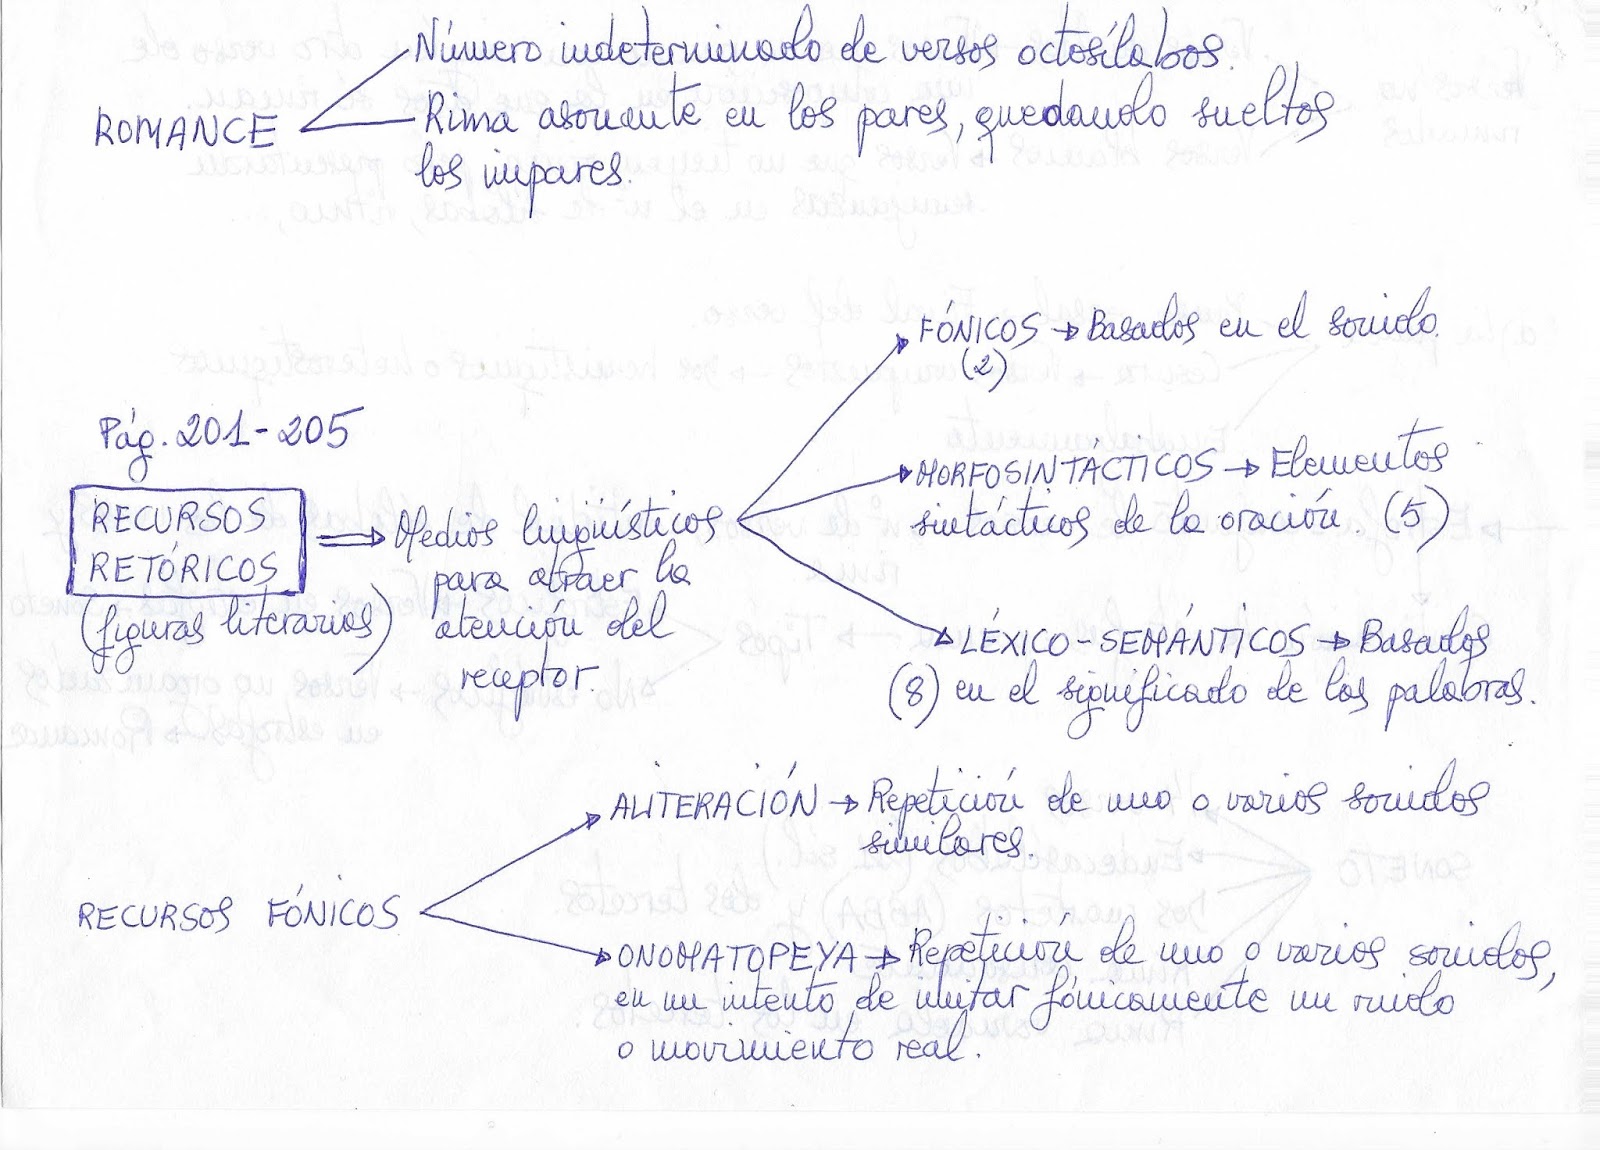 Número indeterminado de versos octosílabos.
ROMANCE
Rima asonante en los pares, quedando sueltos
los impares.
Pág. 201-205
RECURSOS
RETÓRICOS
(figuras literarias)
Medios lingüísticos
para atraer la
atención del
receptor.
FÓNICOS → Basados en el sonido.
(2)
MORFOSINTÁCTICOS → Elementos
sintácticos de la oración. (5)
LÉXICO-SEMÁNTICOS → Basados
(8) en el significado de las palabras.
RECURSOS FÓNICOS
ALITERACIÓN → Repetición de uno o varios sonidos
similares.
ONOMATOPEYA → Repetición de uno o varios sonidos,
en un intento de imitar fónicamente un ruido
o movimiento real.